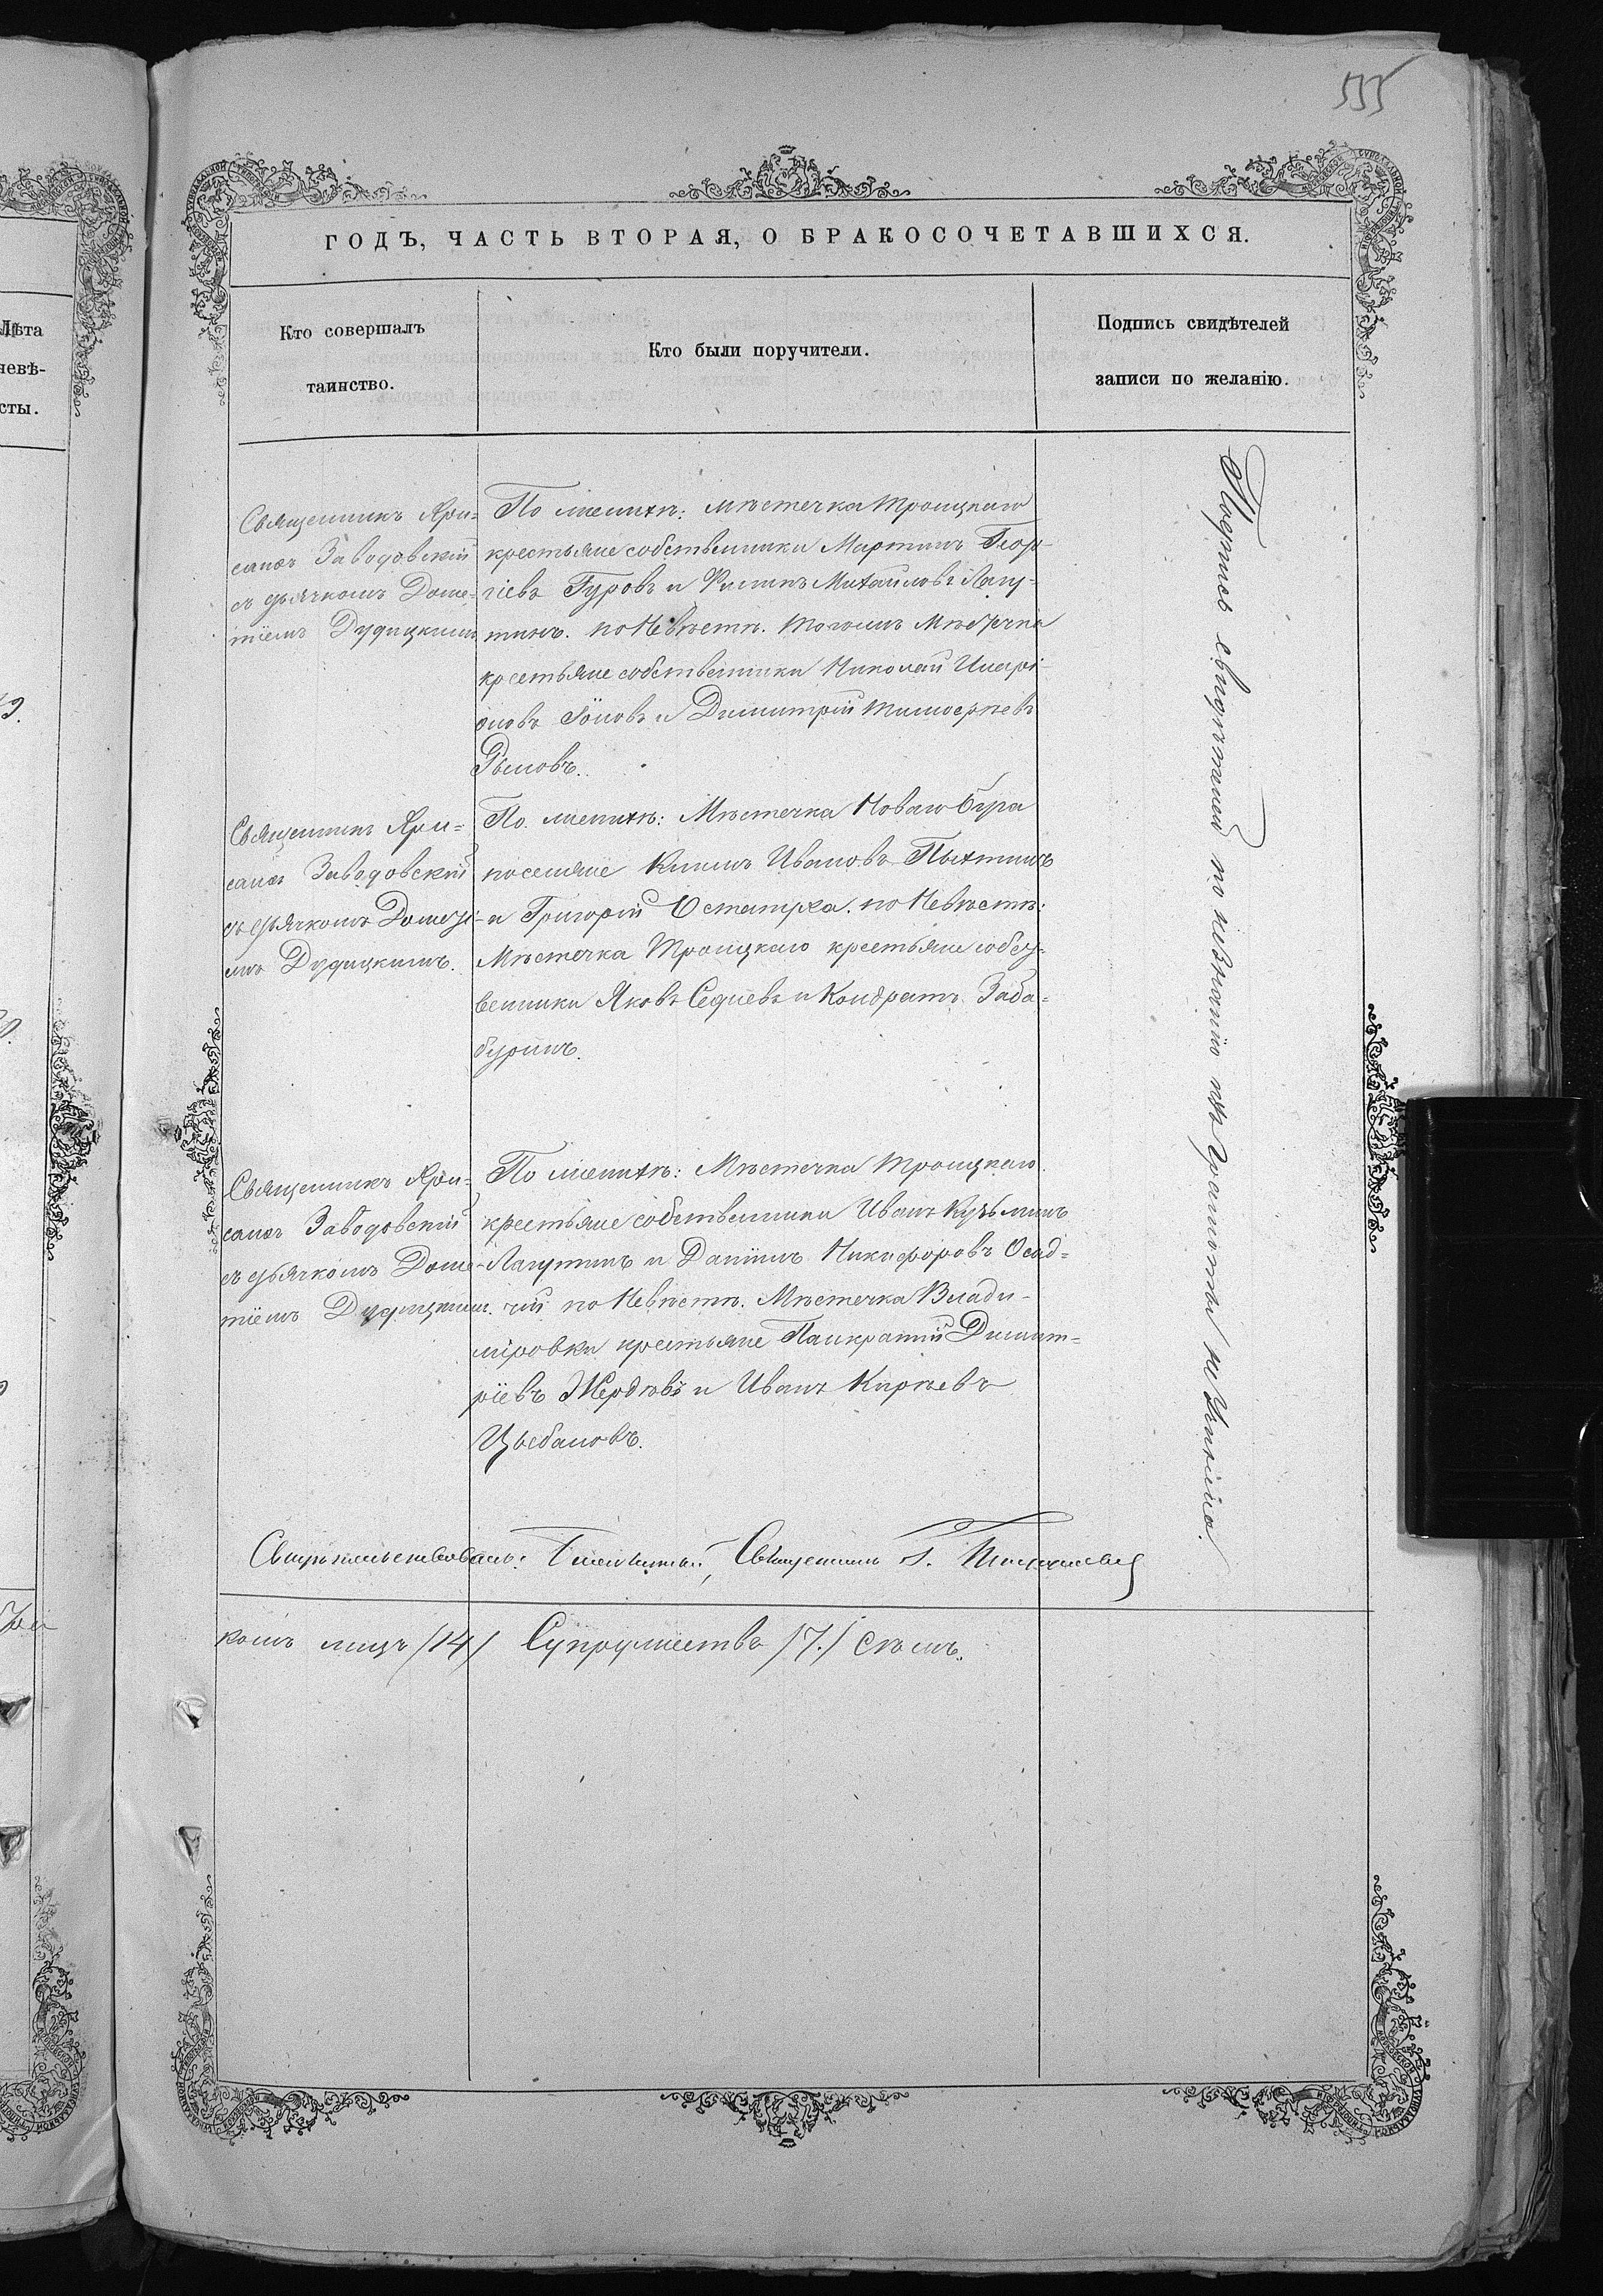 555
ГОДЪ, ЧАСТЬ ВТОРАЯ, О БРАКОСОЧЕТАВШИХСЯ.
Лѣта
невѣ-
сты.
Кто совершалъ
таинство.
Кто были поручители.
Подпись свидѣтелей
записи по желанію.
Священникъ Хри-
санѳъ Заводовскій
съ дьячкомъ Доме-
тіемъ Дудицкимъ
По женихѣ: мѣстечка Троицкаго
крестьяне собственники Мартинъ Геор-
гіевъ Гуровъ и Филипъ Михаиловъ Лагу-
тинъ. по Невѣстѣ. Тогожъ Мѣстечка
крестьяне собственники Николай Илари-
оновъ Іоновъ и Димитрій Тимоѳеевъ
Рыловъ.
Священникъ Хри-
санѳъ Заводовскій
съ дьячкомъ Дометі-
емъ Дудицкимъ.
По женихѣ: Мѣстечка Новаго Буга
поселяне Климъ Ивановъ Пыхтинъ
и Григорій Остапуха. по Невѣстѣ:
Мѣстечка Троицкаго крестьяне собст-
венники Яковъ Седневъ и Кондратъ Заба-
буринъ.
Священникъ Хри-
санѳъ Заводовскій
съ дьячкомъ Доме-
тіемъ Дудицкимъ.
По женихѣ: Мѣстечка Троицкаго
крестьяне собственники Иванъ Кузьминъ
Лагутинъ и Даніилъ Никифоровъ Осад-
чій по Невѣстѣ. Мѣстечка Влади-
міровки крестьяне Панкратій Димит-
ріевъ Жердевъ и Иванъ Кирѣевъ
Цыбановъ.
Подписъ свидѣтелей по незнанію ихъ грамоты не учинена.
Свидѣтельствовалъ: Благочинный, Священникъ
комъ лицъ /14/ Супружества /7./ Семъ.